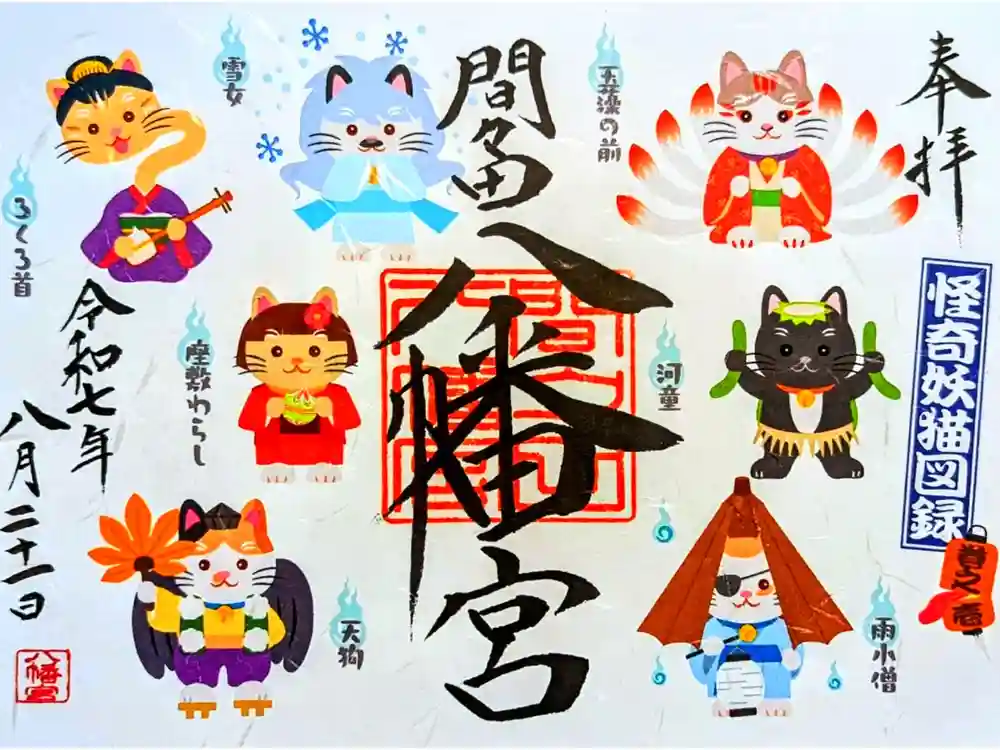 奉拝
怪奇妖猫図録
巻之壱
玉藻の前
河童
雨小僧
間々田八幡宮
雪女
座敷わらし
天狗
ろくろ首
令和七年
八月二十一日
八幡宮